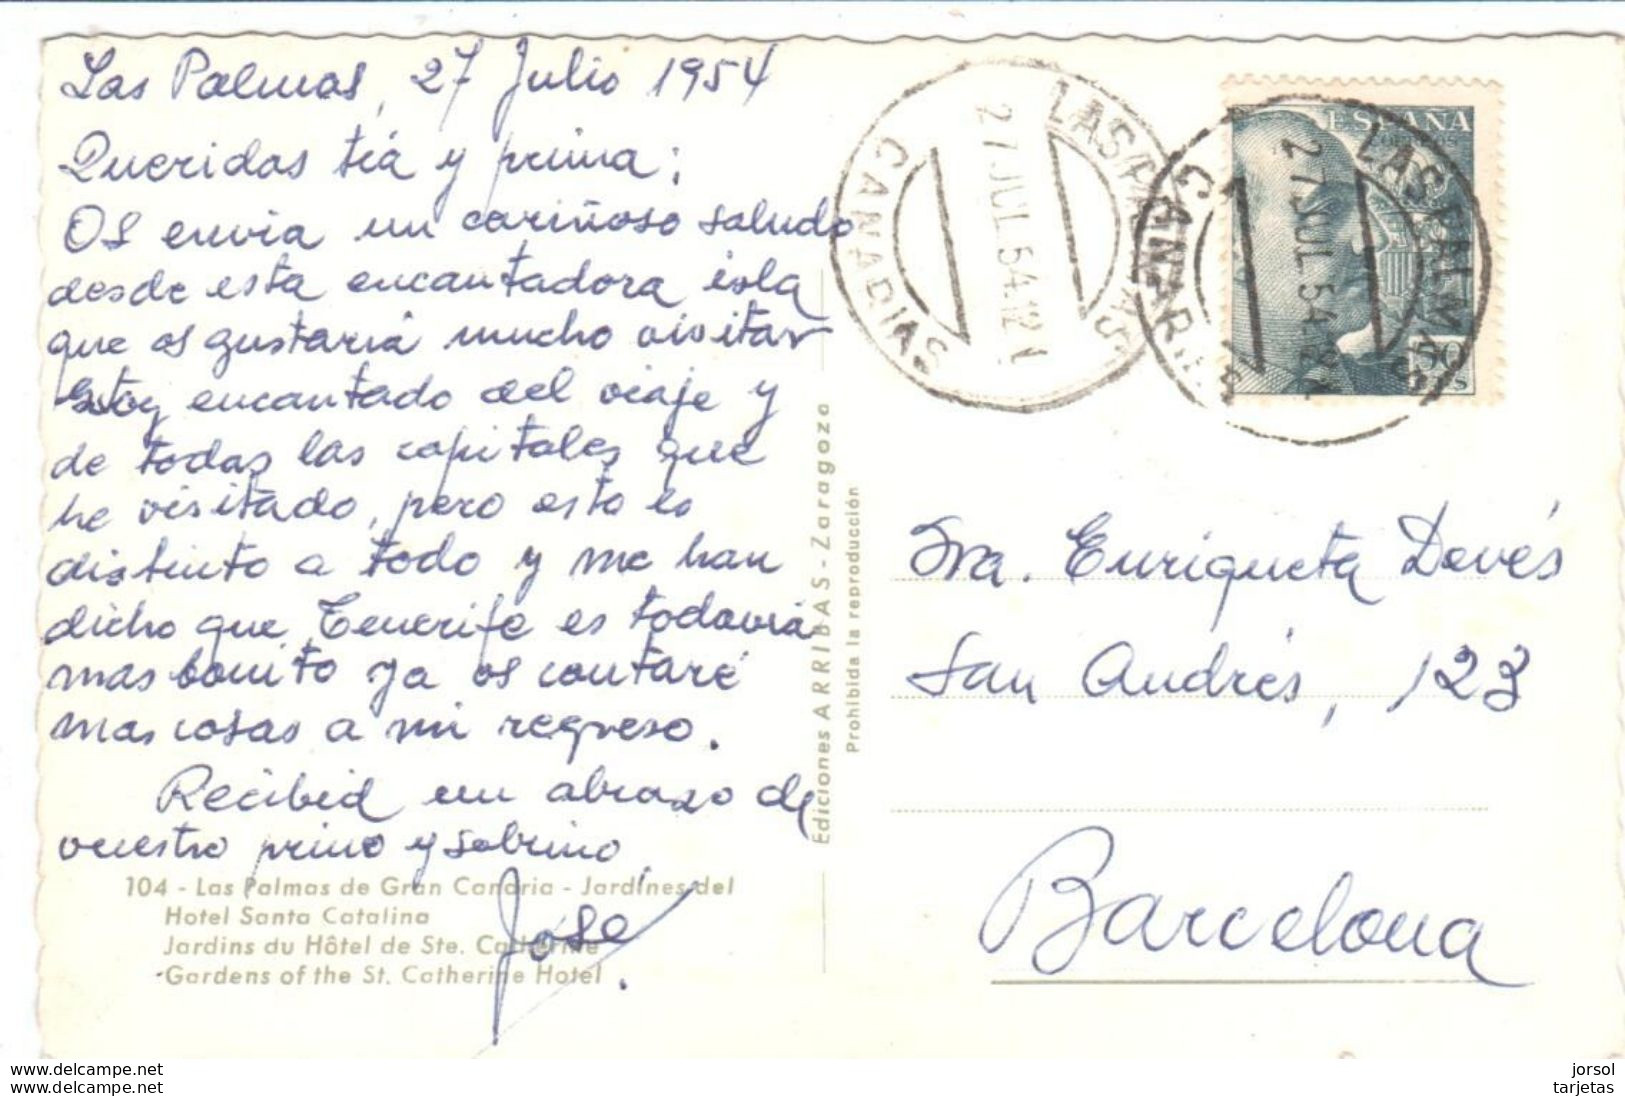 Las Palmas, 27 Julio 1954
Queridas tía y prima;
Os envia un cariñoso saludo
desde esta encantadora isla
que os gustaría mucho visitar
Estoy encantado del viaje y
de todas las capitales que
he visitado, pero esto es
distinto a todo y me han
dicho que Tenerife es todavía
mas bonito ya os contaré
mas cosas a mi regreso.
Recibid un abrazo de
vuestro primo y sobrino
José
104 - Las Palmas de Gran Canaria - Jardines del
Hotel Santa Catalina
Jardins du Hôtel de Ste. Catherine
Gardens of the St. Catherine Hotel
Ediciones ARRIBAS - Zaragoza
Prohibida la reproducción
LAS PALMAS
27 JUL. 54.12
CANARIAS
ESPAÑA
CORREOS
LAS PALMAS
27 JUL. 54
CANARIAS
Sra. Enriqueta Devés
San Andrés, 123
Barcelona
www.delcampe.net
www.delcampe.net
jorsol
tarjetas